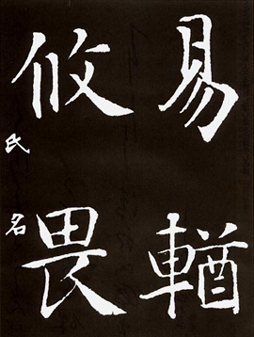 易輶
攸畏
氏名